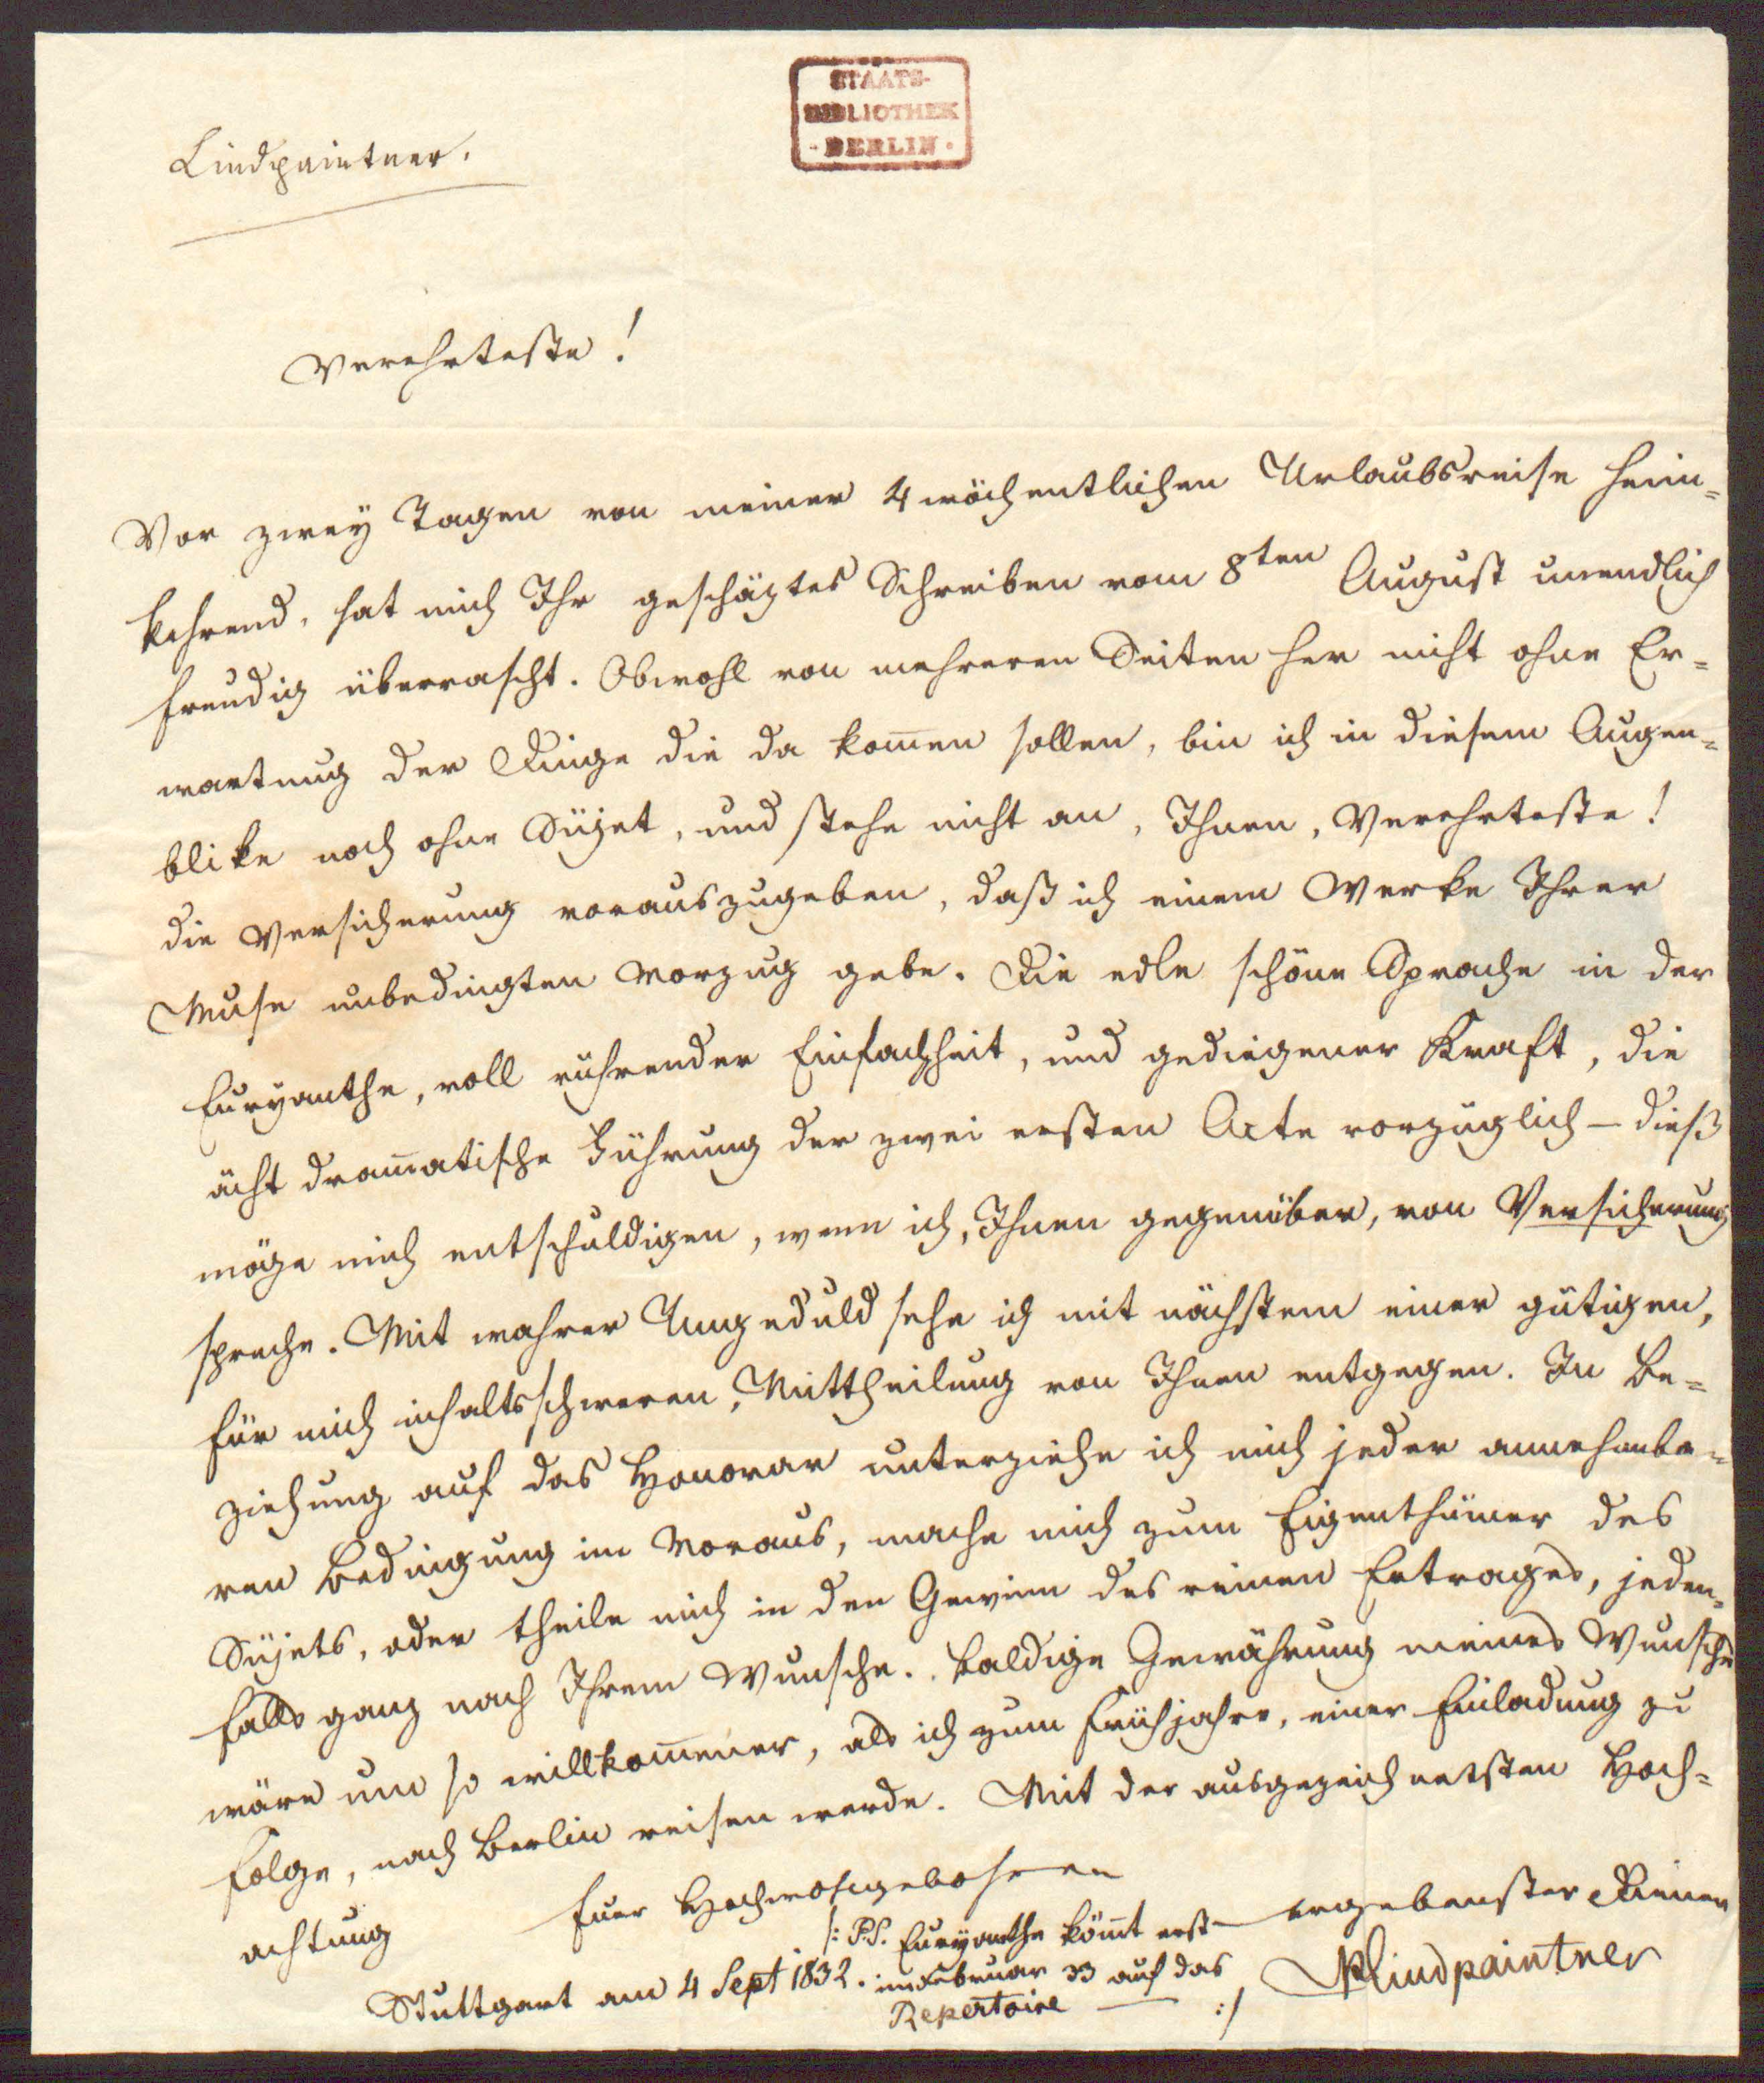 STAATS-
BIBLIOTHEK
· BERLIN ·
Lindpaintner.
Verehrteste!
Vor zwey Tagen von meiner 4 wöchentlichen Urlaubsreise heim=
kehrend, hat mich Ihr geschäztes Schreiben vom 8ten August unendlich
freudig überrascht. Obwohl von mehreren Seiten her nicht ohne Er=
wartung der Dinge die da kom̄en sollen, bin ich in diesem Augen=
blike noch ohne Süjet, und stehe nicht an, Ihnen, Verehrteste!
die Versicherung vorauszugeben, daß ich einem Werke Ihrer
Muse unbedingten Vorzug gebe. Die edle schöne Sprache in der
Euryanthe, voll rührender Einfachheit, und gediegener Kraft, die
ächt dram̄atische Führung der zwei ersten Acte vorzüglich – dieß
möge mich entschuldigen, wenn ich, Ihnen gegenüber, von Versicherung
spreche. Mit wahrer Ungeduld sehe ich mit nächstem einer gütigen,
für mich inhaltsschweren, Mittheilung von Ihnen entgegen. In Be=
ziehung auf das Honorar unterziehe ich mich jeder annehmba=
ren Bedingung im Voraus, mache mich zum Eigenthümer des
Süjets, oder theile mich in den Gewinn des reinen Ertrages, jeden=
falls ganz nach Ihrem Wunsche. Baldige Gewährung meines Wunsches
wäre um so willkom̄ener, als ich zum Frühjahre, einer Einladung zu
Folge, nach Berlin reisen werde. Mit der ausgezeichnetsten Hoch=
achtung
Euer Hochwohlgebohren
ergebenster Diener
/: P.S. Euryanthe köm̄t erst
Stuttgart am 4 Sept 1832. im Februar 33 auf das
Repertoire — :/
PLindpaintner